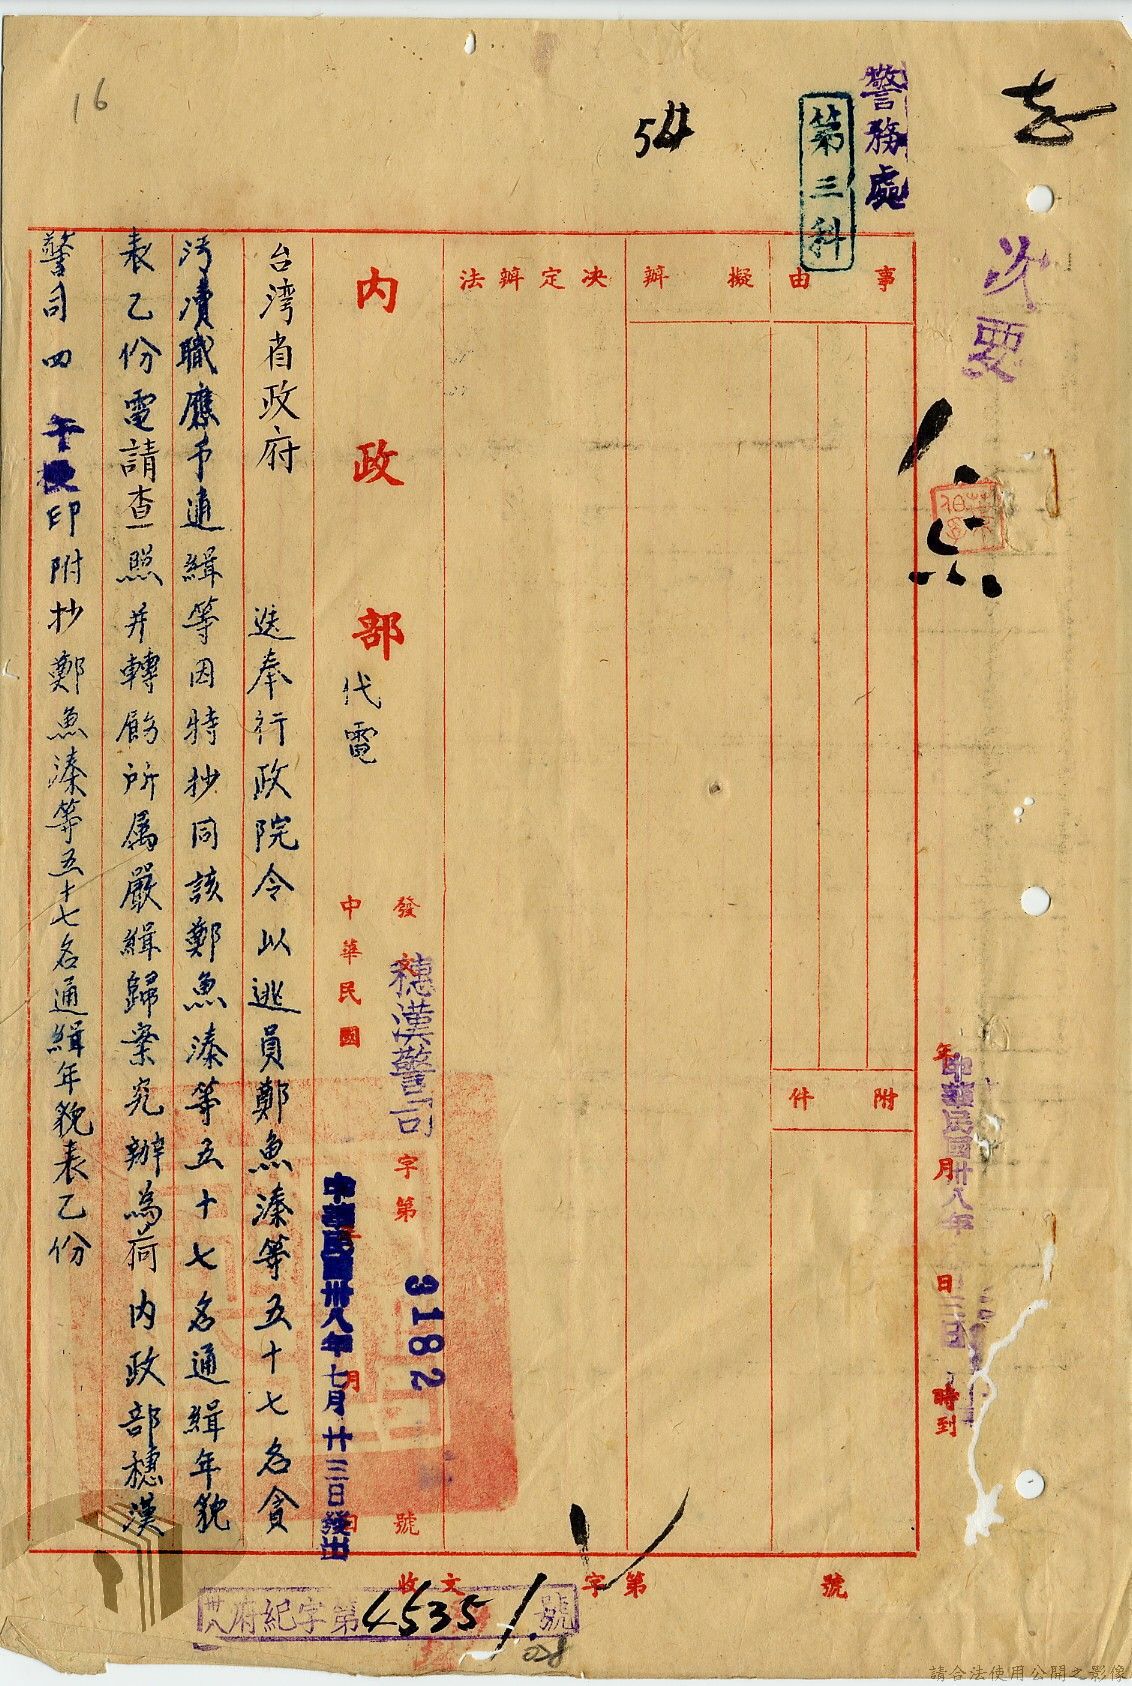 16
54
警務處
第三科
次要
事由
擬辦
決定辦法
附件
年月日時到
中華民國卅八年
內政部代電
發文字第號
穗漢警司
3182
中華民國年月日
中華民國卅八年七月廿三日發出
台湾省政府 迭奉行政院令以逃員鄭魚溱等五十七名貪
污瀆職應予通緝等因特抄同該鄭魚溱等五十七名通緝年貌
表乙份電請查照并轉飭所属嚴緝歸案究辦為荷內政部穗漢
警司四午梗印附抄鄭魚溱等五十七名通緝年貌表乙份
收文字第號
卅八府紀字第4535/號
請合法使用公開之影像